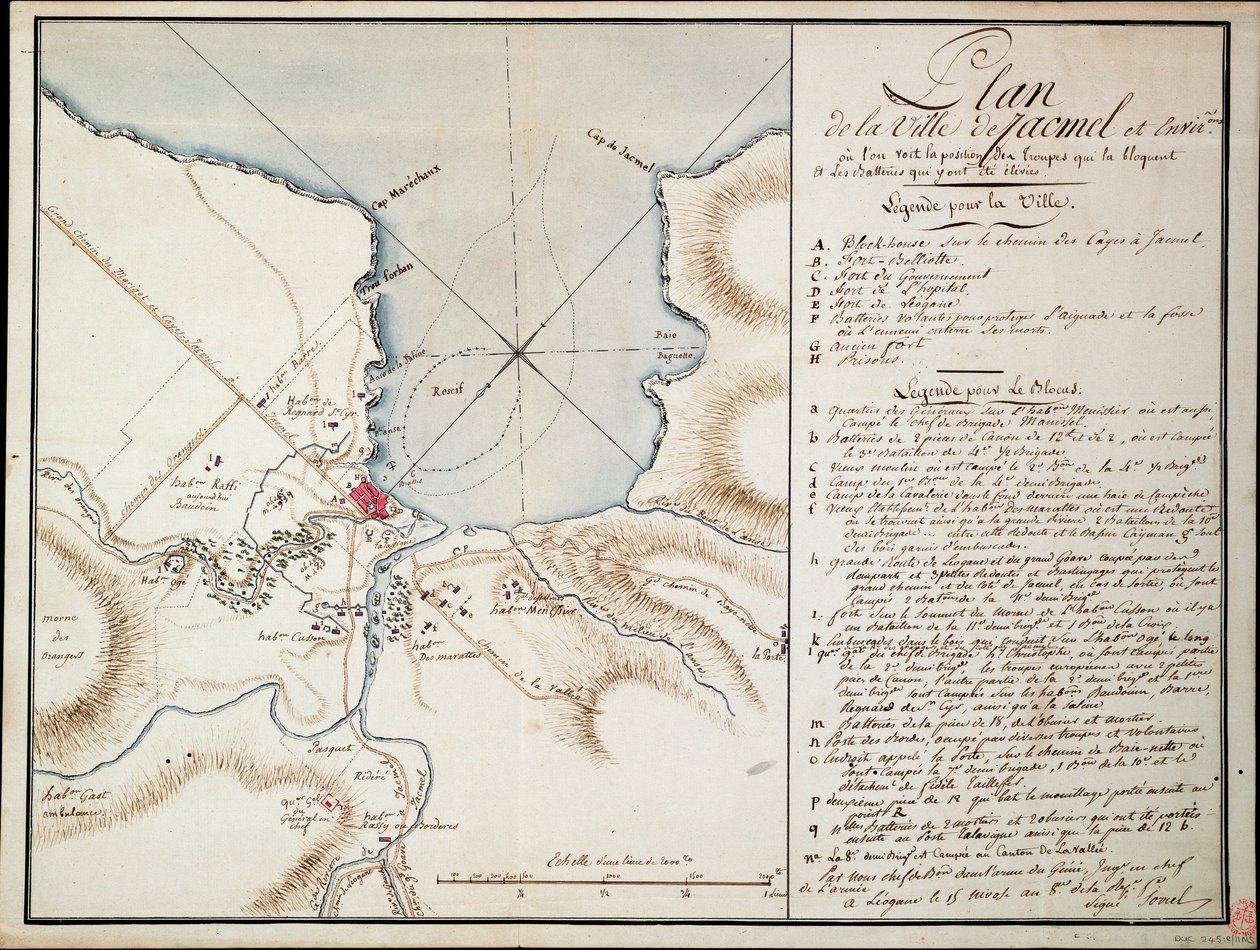 Plan
de la Ville de Jacmel et Envir.ons
où l'on voit la position des troupes qui la bloquent
et les Batteries qui y ont été élévées.
Légende pour la Ville.
A. Block-house sur le chemin des Cayes à Jacmel
B. Fort-Belliotte
C. Fort du Gouvernement
D Fort de L'hopital
E Fort de Léogane
F Batteries volantes pour proteger l'aiguade et la fosse
où L'ennemi enterre ses morts.
G ancien fort
H Prisons.
Légende pour Le Blocus.
a quartier des Généraux sur L'habon Menissier où est aussi
Campé le Chef de Brigade Mamisel.
b Batteries de 2 pieces de Canon de 12 et de 2, où est campée
le 3e Bataillon de 4e 1/2 Brigade
c Vieux moulin où est campé le 2e Bon de la 4e 1/2 Brigde
d Camp du 1er Bon de la 4e demi Brigade.
e Camp de la Cavalerie dans le fond derriere une haie de Campêche
f Vieux Etablissemt de L'habon des marattes où est une Redoute
où se trouvent ainsi qu'à la grande Riviere 2 Bataillons de la 10e
demi Brigade... entre cette Redoute et le Bassin Cayman g sont
des bois garnis d'embuscades.
h grande Route de Léogane et du grand Goave coupée par un
Rempart et 3 petites Redoutes et Bastingages qui protegent le
grand chemin et de Coté de Jacmel en Cas de Sortie, où sont
Campés 2 Batons de la 11e demi Brigde
i. fort sur le sommet du Morne de l'habon Cusson où il y a
un Bataillon de la 11e demi brigde et 1 Bon de la Croix.
k Embuscades dans le bois qui conduit sur L'habon Ogé
l quer gal du chef de Brigade h.i Christophe, où sont campés partie
de la 2e demi brigde les troupes européenes avec 2 petites
pieces de Canon, l'autre partie de la 2e demi brigde et la 1ere
demi brigde sont Campées sur les habons Baudouin, Barre,
Regnard de St Cyr, ainsi qu'à la Saline
m Batteries de la piece de 18, des obusiers et mortier.
n Poste des Bordes, occupé par diverses troupes et volontaires
o Endroit appelé la Porte, sur le chemin de Baie-nette où
sont Campés la 7e demi brigade, 1 Bon de la 10e et le
détachemt de fidele Taillefer
p deuxieme piece de 12 qui bat le mouillage portée ensuite au
point R
q Nlles Batteries de 2 mortiers et 2 obusiers qui ont été portées
ensuite au Poste Talavigne ainsi que la piece de 12 b.
na La 8e demi Brige est Campée au Canton de La Vallée.
Par Nous chef de Bon dans l'arme du Génié, Ingr en chef
de L'armée
a Léogane le 15 nivose an 8e de la Rep.
Signé
Cap Maréchaux
Cap de Jacmel
Grand chemin du Marigot et Cayes Jacmel
Trou forban
a Jacmel
habon Barre
Anse de la Saline
Baie
Baguette
Rescif
Habon de
Regnard St Cyr
l'anse
chemin des Orangers
habon Raffi
aujourdhui
Baudoin
Rivr des Orangers
Habon Ogé
habon Cusson
morne
des
Orangers
talavigne
habon Menissier
habon
Des marattes
chemin de la Vallée
Gd chemin de Baye-nette
la Porte
Pasquet
Ridéré
habon Gast
ambulance
quer Gel
du
Général en
chef
habon
Rassy ou Borderes
Jacmel
Echelle d'une lieue de 2000 to
100 200 300 400 500 1000 1500 2000
1/4 1/2 3/4 1 Lieue
DUC 245-2/11